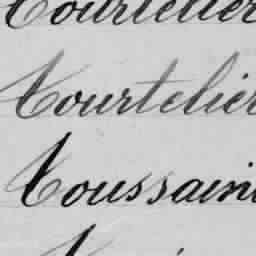 Tourtelier
Tourtelier
Toussain